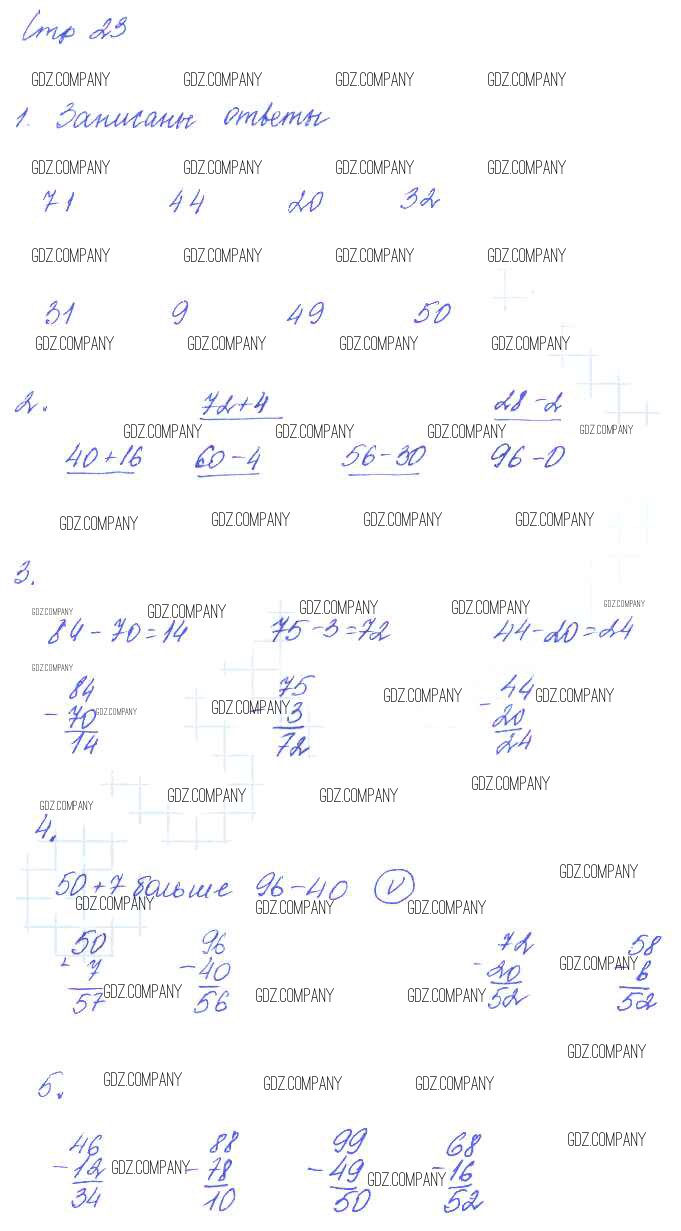 Стр 23
GDZ.COMPANY GDZ.COMPANY GDZ.COMPANY GDZ.COMPANY
1. Записаны ответы
GDZ.COMPANY GDZ.COMPANY GDZ.COMPANY GDZ.COMPANY
71 44 20 32
GDZ.COMPANY GDZ.COMPANY GDZ.COMPANY GDZ.COMPANY
31 9 49 50
GDZ.COMPANY GDZ.COMPANY GDZ.COMPANY GDZ.COMPANY
2. 72+4 28-2
GDZ.COMPANY GDZ.COMPANY GDZ.COMPANY GDZ.COMPANY
40+16 60-4 56-30 96-0
GDZ.COMPANY GDZ.COMPANY GDZ.COMPANY GDZ.COMPANY
3.
GDZ.COMPANY GDZ.COMPANY GDZ.COMPANY GDZ.COMPANY GDZ.COMPANY
84-70=14 75-3=72 44-20=24
GDZ.COMPANY
84 75 44
GDZ.COMPANY GDZ.COMPANY GDZ.COMPANY GDZ.COMPANY
-70 -3 -20
14 72 24
GDZ.COMPANY GDZ.COMPANY GDZ.COMPANY GDZ.COMPANY
4.
GDZ.COMPANY
50+7 больше 96-40 V
GDZ.COMPANY GDZ.COMPANY GDZ.COMPANY
50 96 72 58
+7 -40 -20 -6
GDZ.COMPANY
57 56 52 52
GDZ.COMPANY GDZ.COMPANY GDZ.COMPANY
GDZ.COMPANY
5. GDZ.COMPANY GDZ.COMPANY GDZ.COMPANY
46 88 99 68
GDZ.COMPANY
-12 -78 -49 -16
GDZ.COMPANY GDZ.COMPANY
34 10 50 52